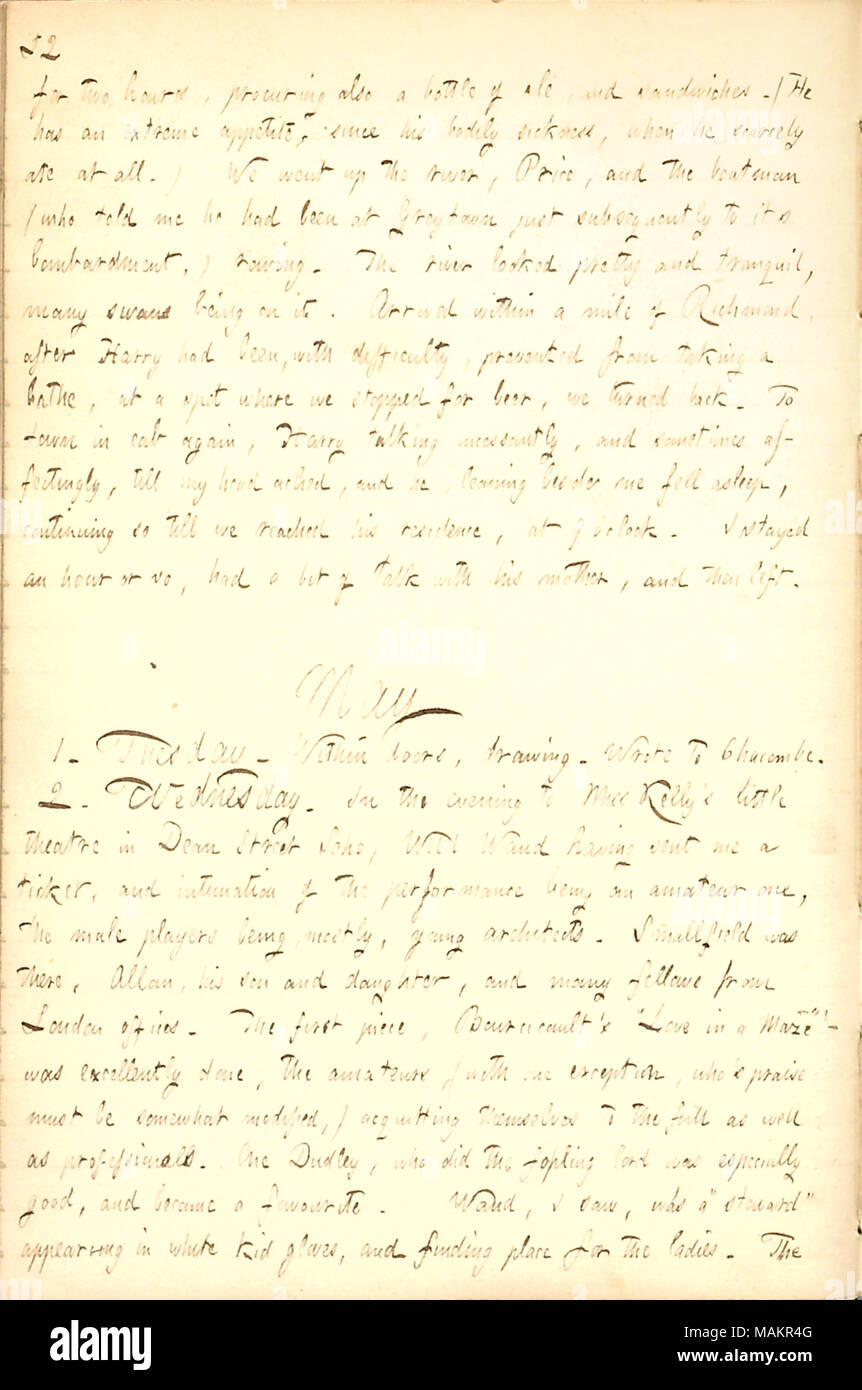 52
for two hours, procuring also a bottle of ale, and sandwiches. (He
has an extreme appetite, since his bodily sickness, when he scarcely
ate at all.) We went up the river, Price, and the boatman
(who told me he had been at Greytown just subsequently to its
bombardment,) rowing. The river looked pretty and tranquil,
many swans being on it. Arrived within a mile of Richmond,
after Harry had been, with difficulty, prevented from taking a
bathe, at a spot where we stopped for beer, we turned back. To
town in cab again, Harry talking incessantly, and sometimes af-
fectingly, till my head ached, and he, leaning besides me fell asleep,
continuing so till we reached his residence, at 9 o'clock. I stayed
an hour or so, had a bit of talk with his mother, and then left.
May
1. Tuesday. Within doors, drawing. Wrote to Chacombe.
2. Wednesday. In the evening to Miss Kelly's little
theatre in Dean Street Soho, Will Waud having sent me a
ticket, and intimation of the performance being an amateur one,
the male players being mostly, young architects. Smallfield was
there, Allan, his son and daughter, and many fellows from
London offices. The first piece, Bourcicault's "Love in a Maze"
was excellently done, the amateurs, (with one exception, who's praise
must be somewhat modified,) acquitting themselves to the full as well
as professionals. One Dudley, who did the fopling lord was especially
good, and became a favourite. Waud, I saw, was a "steward"
appearing in white kid gloves, and finding place for the ladies. The
alamy
Image ID: MAKR4G
www.alamy.com